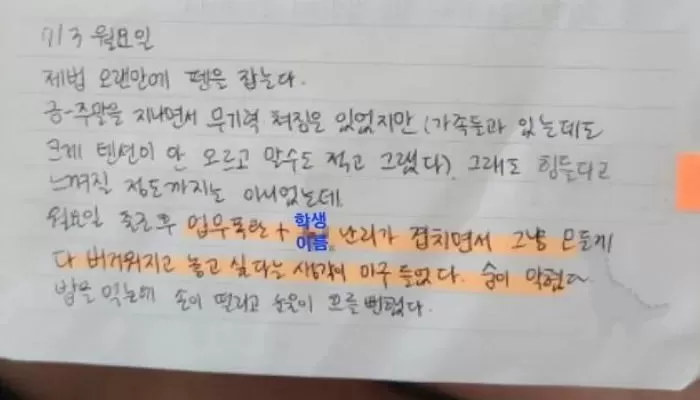 7/3 월요일
제법 오랜만에 펜을 잡는다.
금-주말을 지나면서 무기력 쳐짐은 있었지만 (가족들과 있는데도
크게 텐션이 안 오르고 말수도 적고 그랬다). 그래도 힘들다고
느껴질 정도까지는 아니었는데.
월요일 출근 후 업무폭탄 + 학생 이름 난리가 겹치면서 그냥 모든게
다 버거워지고 놓고 싶다는 생각이 마구 들었다. 숨이 막혔다.
밥을 먹는데 손이 떨리고 눈물이 흐를 뻔했다.